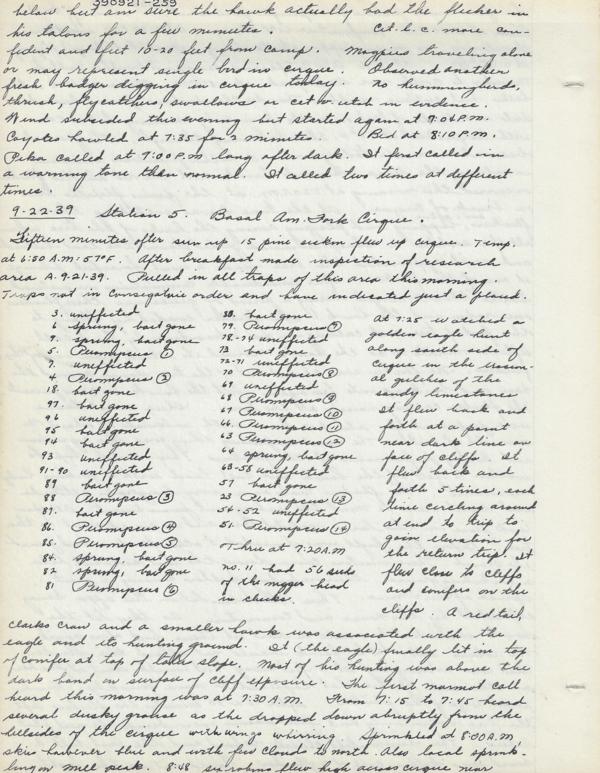 390921-259
below but am sure the hawk actually had the flicker in
his talons for a few minutes. Cit. l. c. more con-
fident and feet 10-20 feet from camp. Magpies traveling alone
or may represent single bird in cirque. Observed another
fresh badger digging in cirque today. No hummingbirds,
thrush, flycatchers, swallows or cet w. utah in evidence.
Wind subsided this evening but started again at 9:06 P.M.
Coyotes howled at 7:35 for 2 minutes. Bed at 8:10 P.M.
Pika called at 7:00 P.M. long after dark. It first called in
a warning tone than normal. It called two times at different
times.
9-22-39 Station 5. Basal Am. Fork Cirque.
Fifteen minutes after sun up 15 pine siskin flew up cirque. Temp.
at 6:50 A.M: 57°F. After breakfast made inspection of research
area A. 9-21-39. Pulled in all traps of this area this morning.
Traps not in consegative order and have indicated just a placed.
3. uneffected
6 sprung, bait gone
9. sprung, bait gone
5. Peromyscus (1)
7. uneffected
4 Peromyscus (2)
18. bait gone
97. bait gone
96 uneffected
95 bait gone
94 bait gone
93 uneffected
91-90 uneffected
89 bait gone
88 Peromyscus (3)
87. bait gone
86. Peromyscus (4)
85. Peromyscus (5)
84. sprung, bait gone
82 sprung, bait gone
81 Peromyscus (6)
80. bait gone
79. Peromyscus (7)
78-74 uneffected
73 bait gone
72-71 uneffected
70 Peromyscus (8)
69 uneffected
68 Peromyscus (9)
67 Peromyscus (10)
66. Peromyscus (11)
63 Peromyscus (12)
64 sprung, bait gone
63-58 uneffected
57 bait gone
23 Peromyscus (13)
54-52 uneffected
51. Peromyscus (14)
Thru at 7:20 A.M
no. 11 had 56 seeds
of the nigger head
in cheeks.
At 7:25 watched a
golden eagle hunt
along south side of
cirque in the erosion-
al gulches of the
sandy limestones
It flew back and
forth at a point
near dark line on
face of cliffs. It
flew back and
forth 5 times, each
time circling around
at end to trip to
gain elevation for
the return trip. It
flew close to cliffs
and conifers on the
cliffs. A red tail,
clarks crow and a smaller hawk was associated with the
eagle and its hunting ground. It (the eagle) finally lit in top
of conifer at top of talus slope. Most of his hunting was above the
dark band on surface of cliff exposure. The first marmot call
heard this morning was at 7:30 A.M. From 7:15 to 7:45 heard
several dusky grouse as the dropped down abruptly from the
hillsides of the cirque with wings whirring Sprinkled at 8:00 A.M,
skies however blue and with few clouds to north. Also local sprink-
ling on mill peak. 8:48 six robins flew high across cirque near